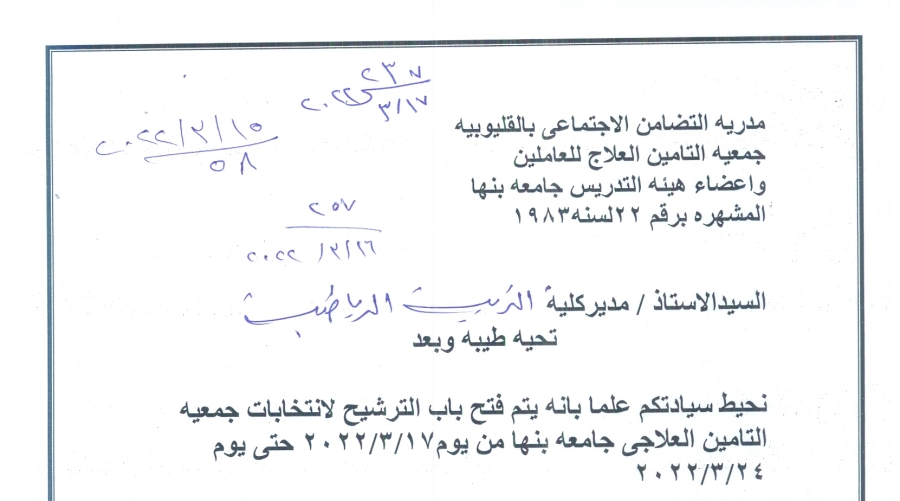 ٢٣٧
٣/١٧ ٢٠٢٢
٢٠٢٢/٣/١٥
٥٨
مديريه التضامن الاجتماعى بالقليوبيه
جمعيه التامين العلاج للعاملين
واعضاء هيئه التدريس جامعه بنها
المشهره برقم ٢٢لسنه١٩٨٣
٢٥٧
٢٠٢٢/٣/١٦
السيدالاستاذ / مديركلية التربية الرياضية
تحيه طيبه وبعد
نحيط سيادتكم علما بانه يتم فتح باب الترشيح لانتخابات جمعيه
التامين العلاجى جامعه بنها من يوم٢٠٢٢/٣/١٧ حتى يوم
٢٠٢٢/٣/٢٤